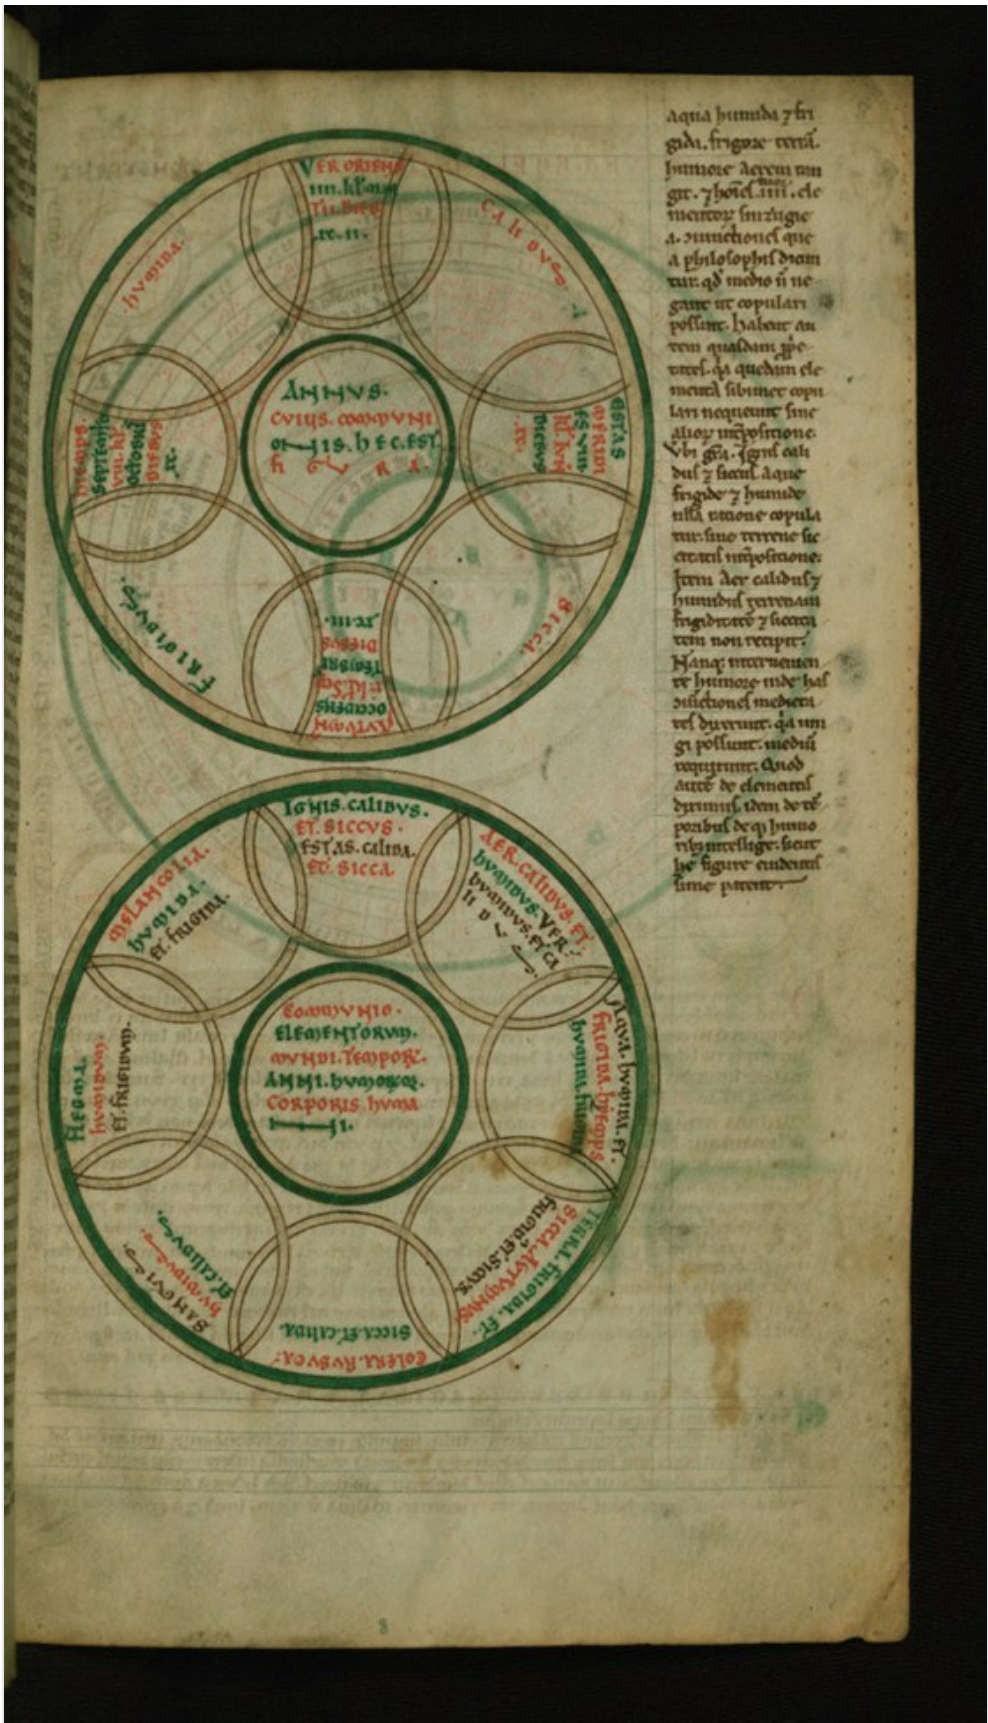 VER ORIENS
CALIDVS.
ESTAS
MERIDI
DIEBVS
SICCA.
AVTVMN
OCCIDENS
DIEBVS
xc.iii.
FRIGIDVS.
HIEMPS.
SEPTEMTRIO
DIEBVS
xc.
.hVMIDA.
ANNVS.
CVIVS. COMMVNI
ONIS. hEC. EST.
FIGVRA.
IGNIS. CALIDVS.
ET. SICCVS.
ESTAS. CALIDA.
ET. SICCA.
AER. CALIDVS. ET.
hVMIDVS. VER.
hVMIDVS. ET CA
LIDVS.
AQVA. hVMIDA. ET.
FRIGIDA. hIEMPS
hVMIDA. FRIGIDA
TERRA. FRIGIDA. ET.
SICCA. AVTVMNVS.
FRIGID. ET. SICCVS.
COLERA. RVBVEA.
SICCA. ET. CALIDA.
SANGVIS.
hVMIDVS.
ET. CALIDVS.
FLEGMA.
hVMIDVM.
ET. FRIGIDVM.
MELANCOLIA.
hVMIDA.
ET. FRIGIDA.
COMMVNIO.
ELEMENTORVM.
MVNDI. TEMPOR̄.
ANNI. hVMORVM.
CORPORIS. hVMA
NI.
aqua humida ⁊ fri
gida. frigore terrā.
humore aerem tan
git. ⁊ .iiii. ele
mentor̄
a. que
a philosophis dicun
tur. qd̄ medio
ut copulari
possunt. habent au
tem quasdam
q̄a quedam ele
menta sibimet copu
lari nequeunt sine
alior̄ int̄positione.
Vbi gr̄a. Ignis cali
dus ⁊ siccus. aque
frigide ⁊ humide
ulla ratione copula
tur. sine terrene sic
citatis int̄positione.
Item Aer calidus ⁊
humidus terrenam
frigiditatē ⁊ siccita
tem non recipit.
Nanq; intervenien
te humore. inde has
iunctiones medieta
tes dixerunt. q̄a iun
gi possunt. mediū
requirunt. Quod
autē de elementis
diximus. idem de tē
poribus de q; humo
rib; intellige. sicut
hę figure evidentis
sime patent.
8